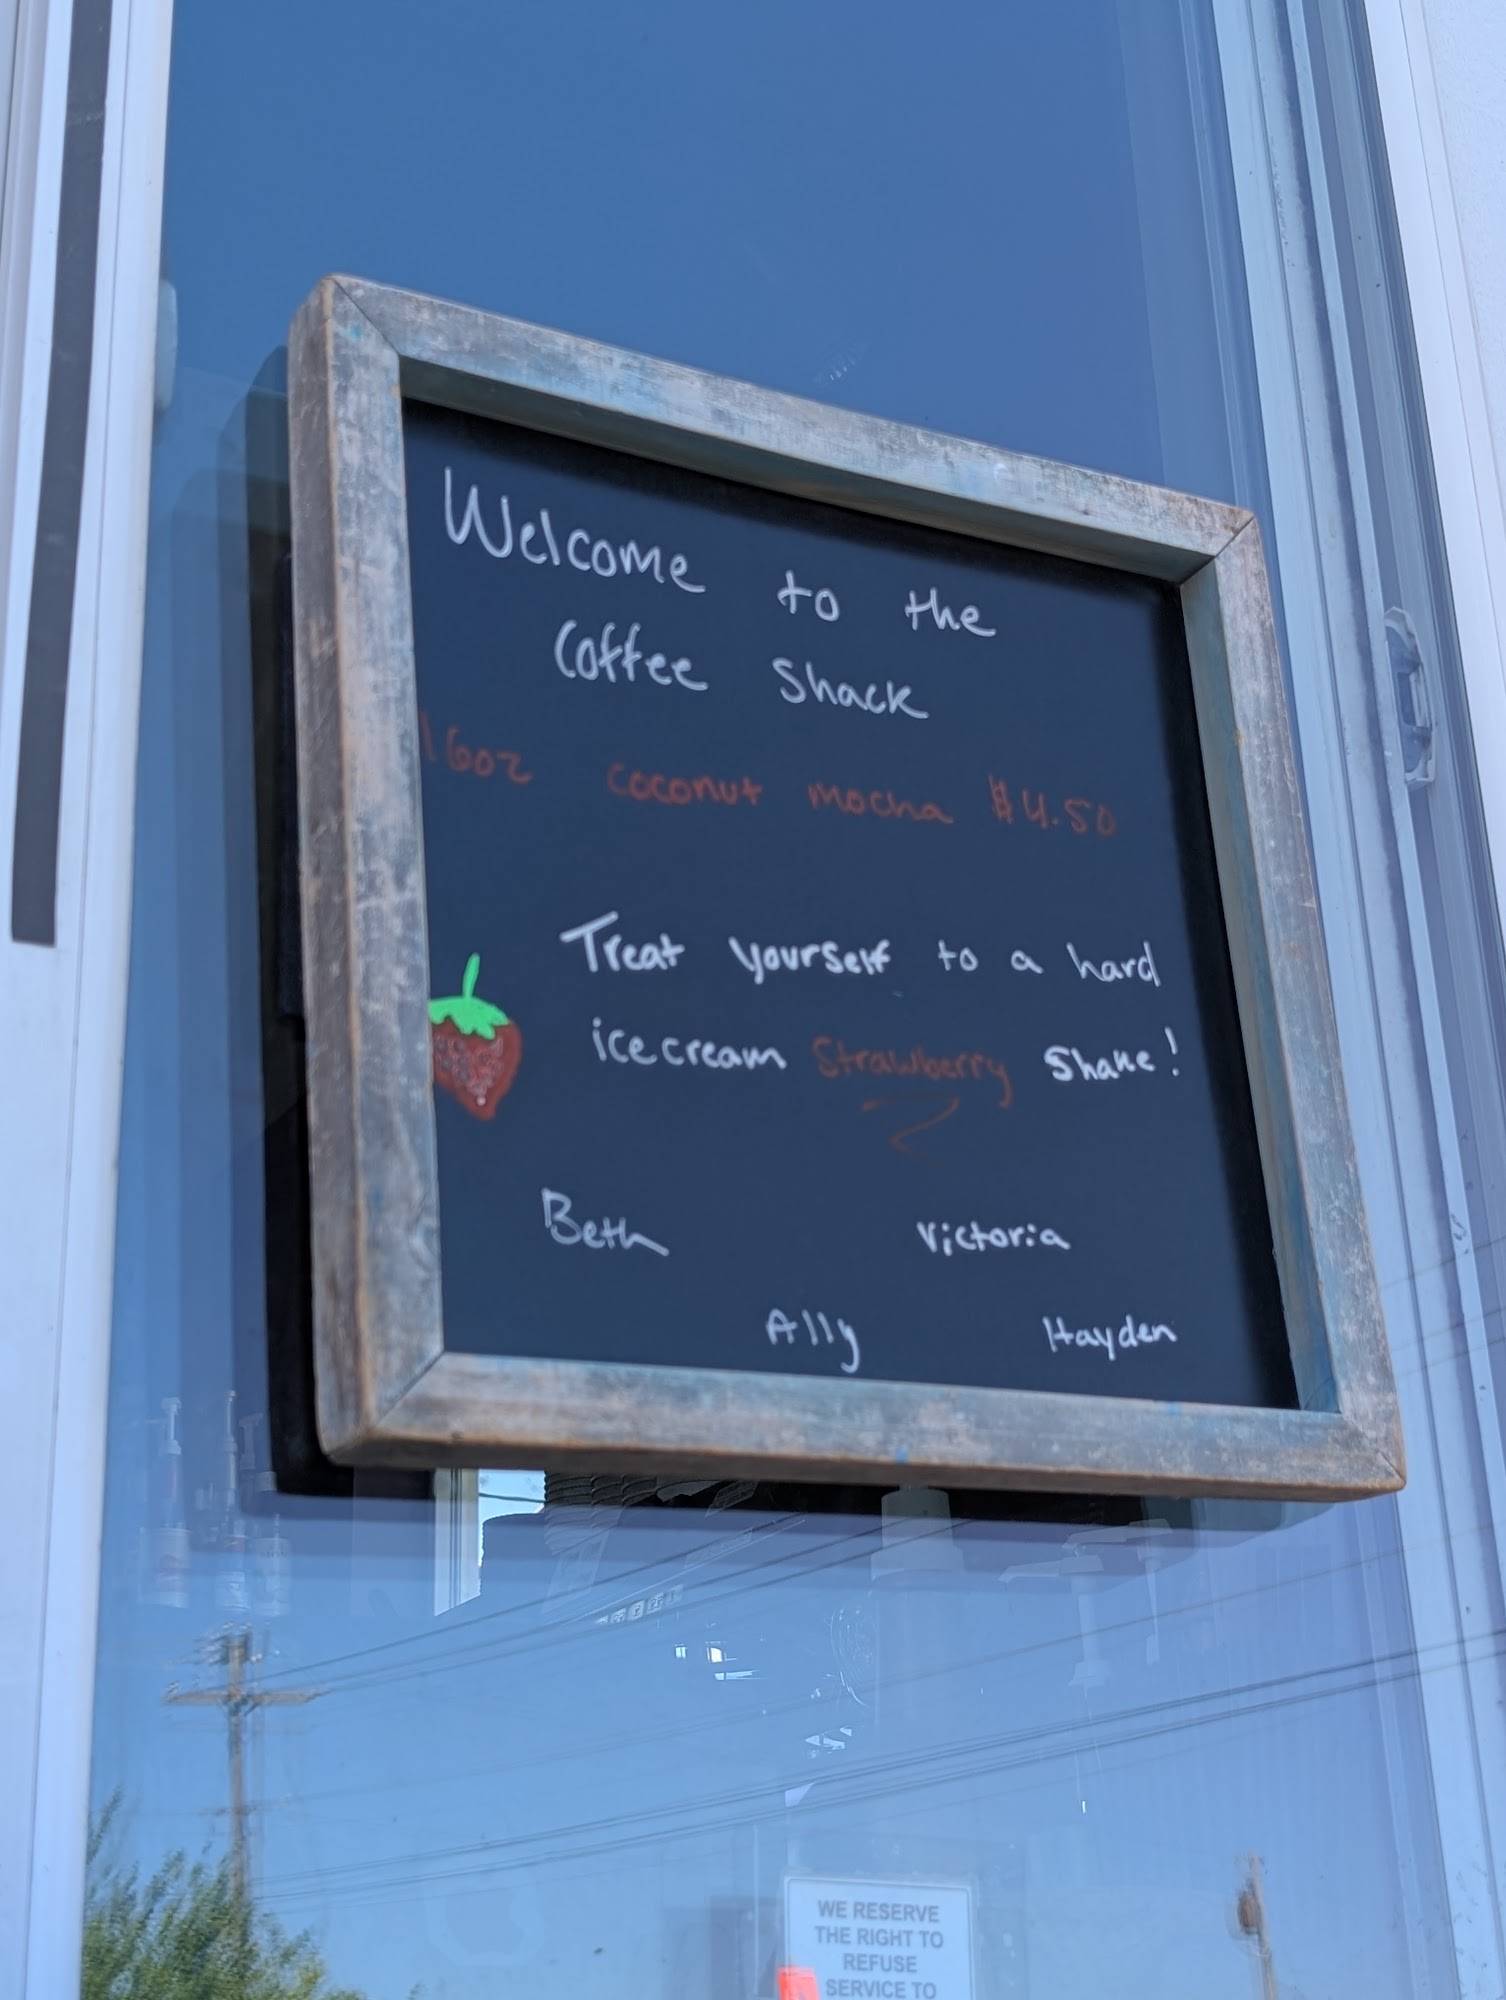 Welcome to the
Coffee Shack
16oz coconut mocha $4.50
Treat yourself to a hard
icecream Strawberry Shake!
Beth Victoria
Ally Hayden
WE RESERVE
THE RIGHT TO
REFUSE
SERVICE TO